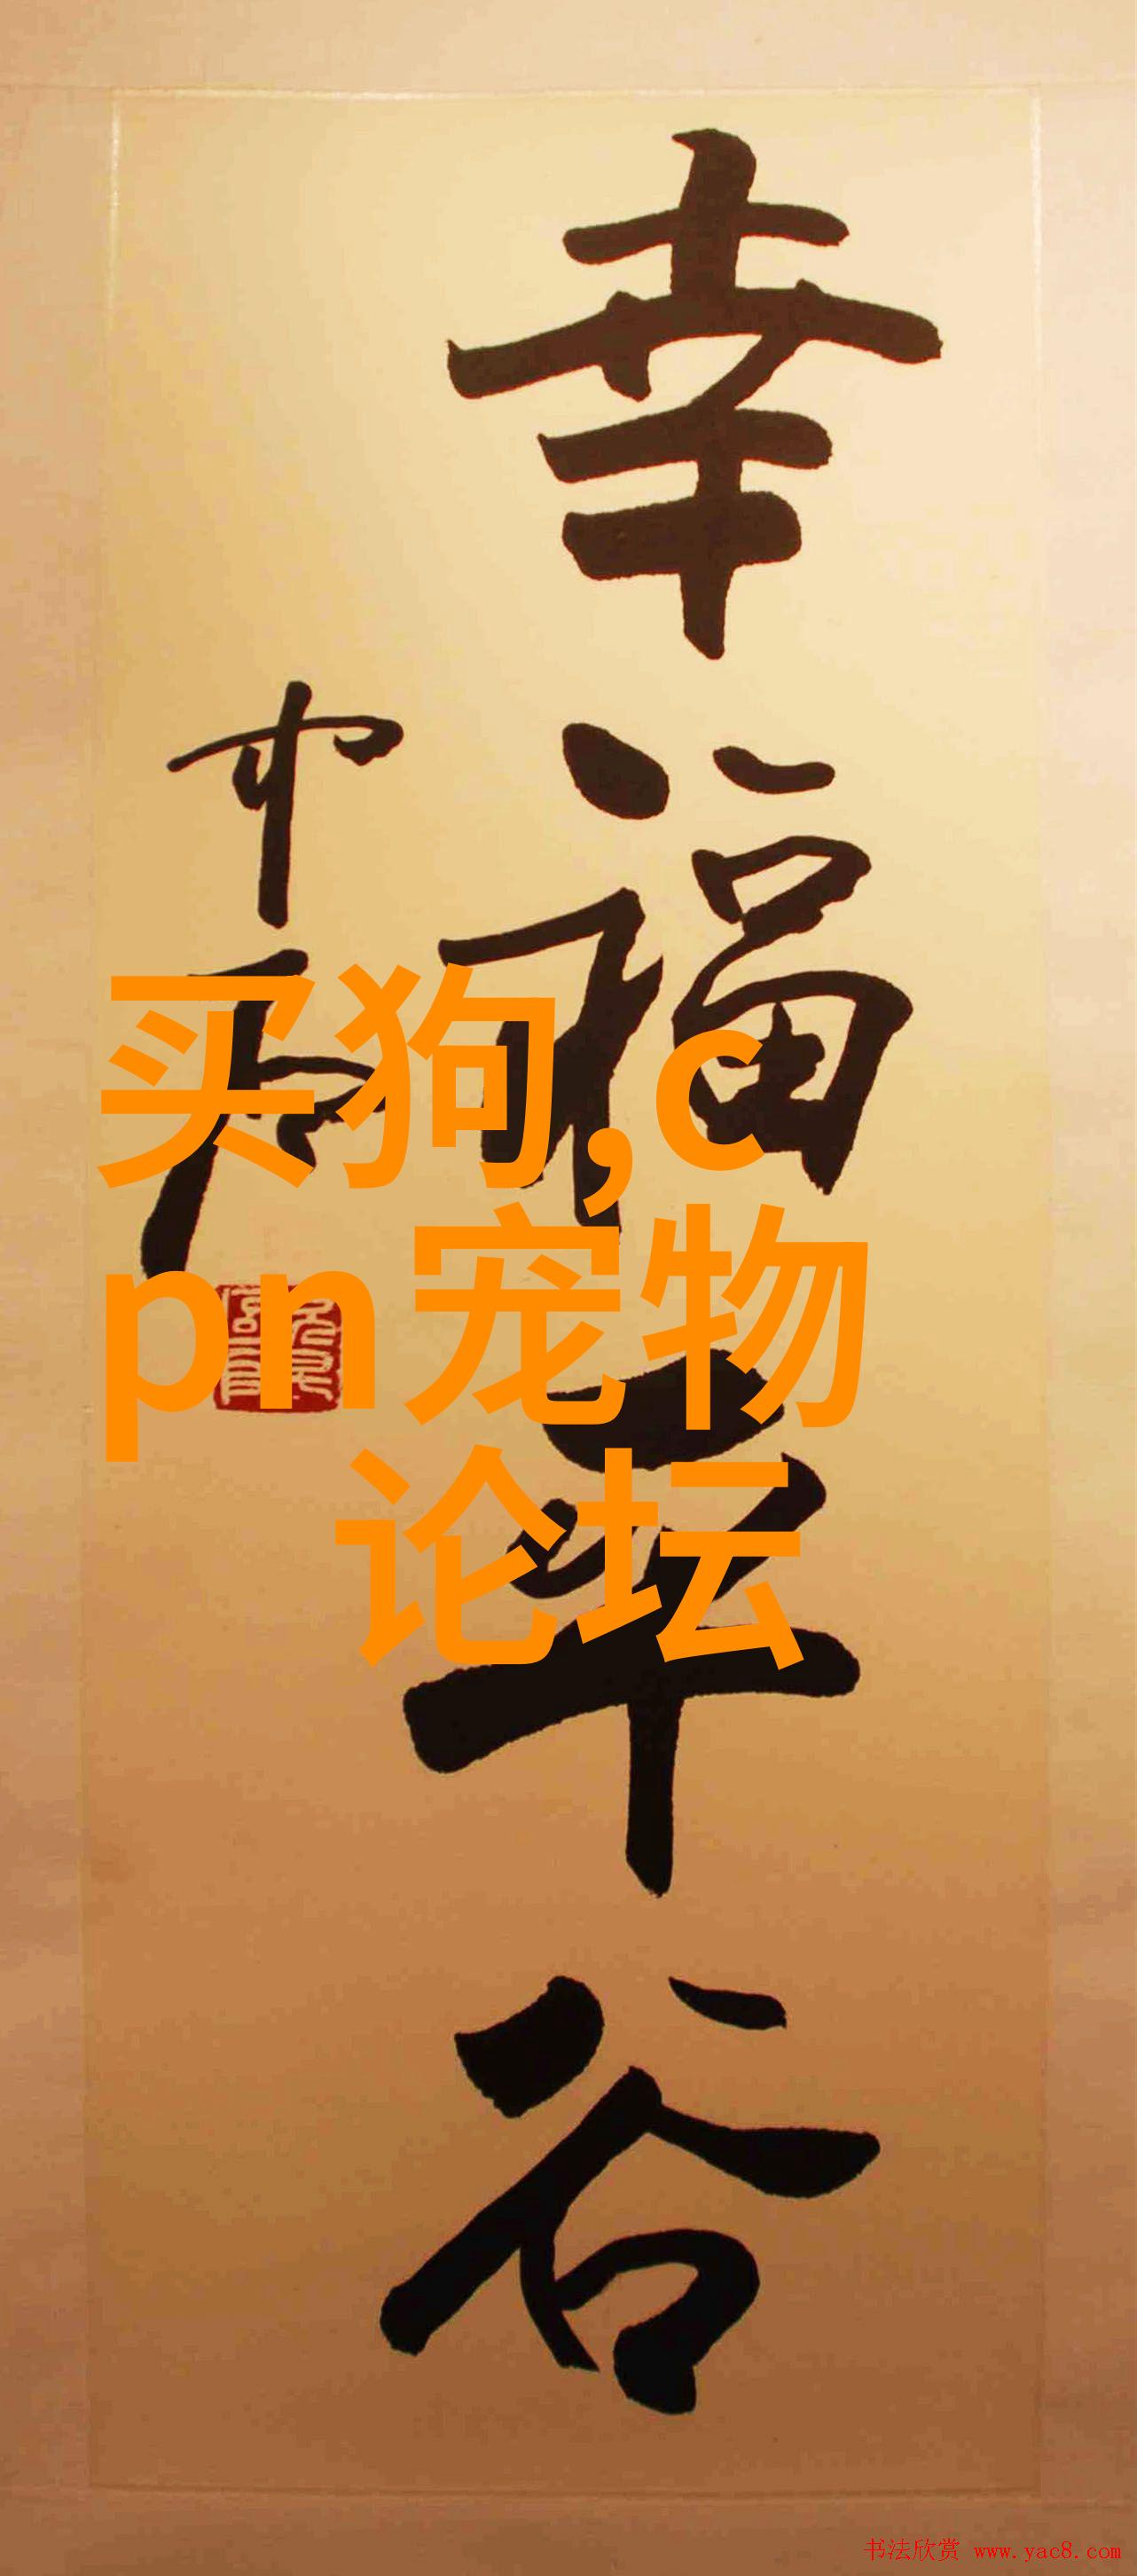 幸福幸谷
买狗,c
pn宠物
论坛
书法欣赏 www.yac8.com